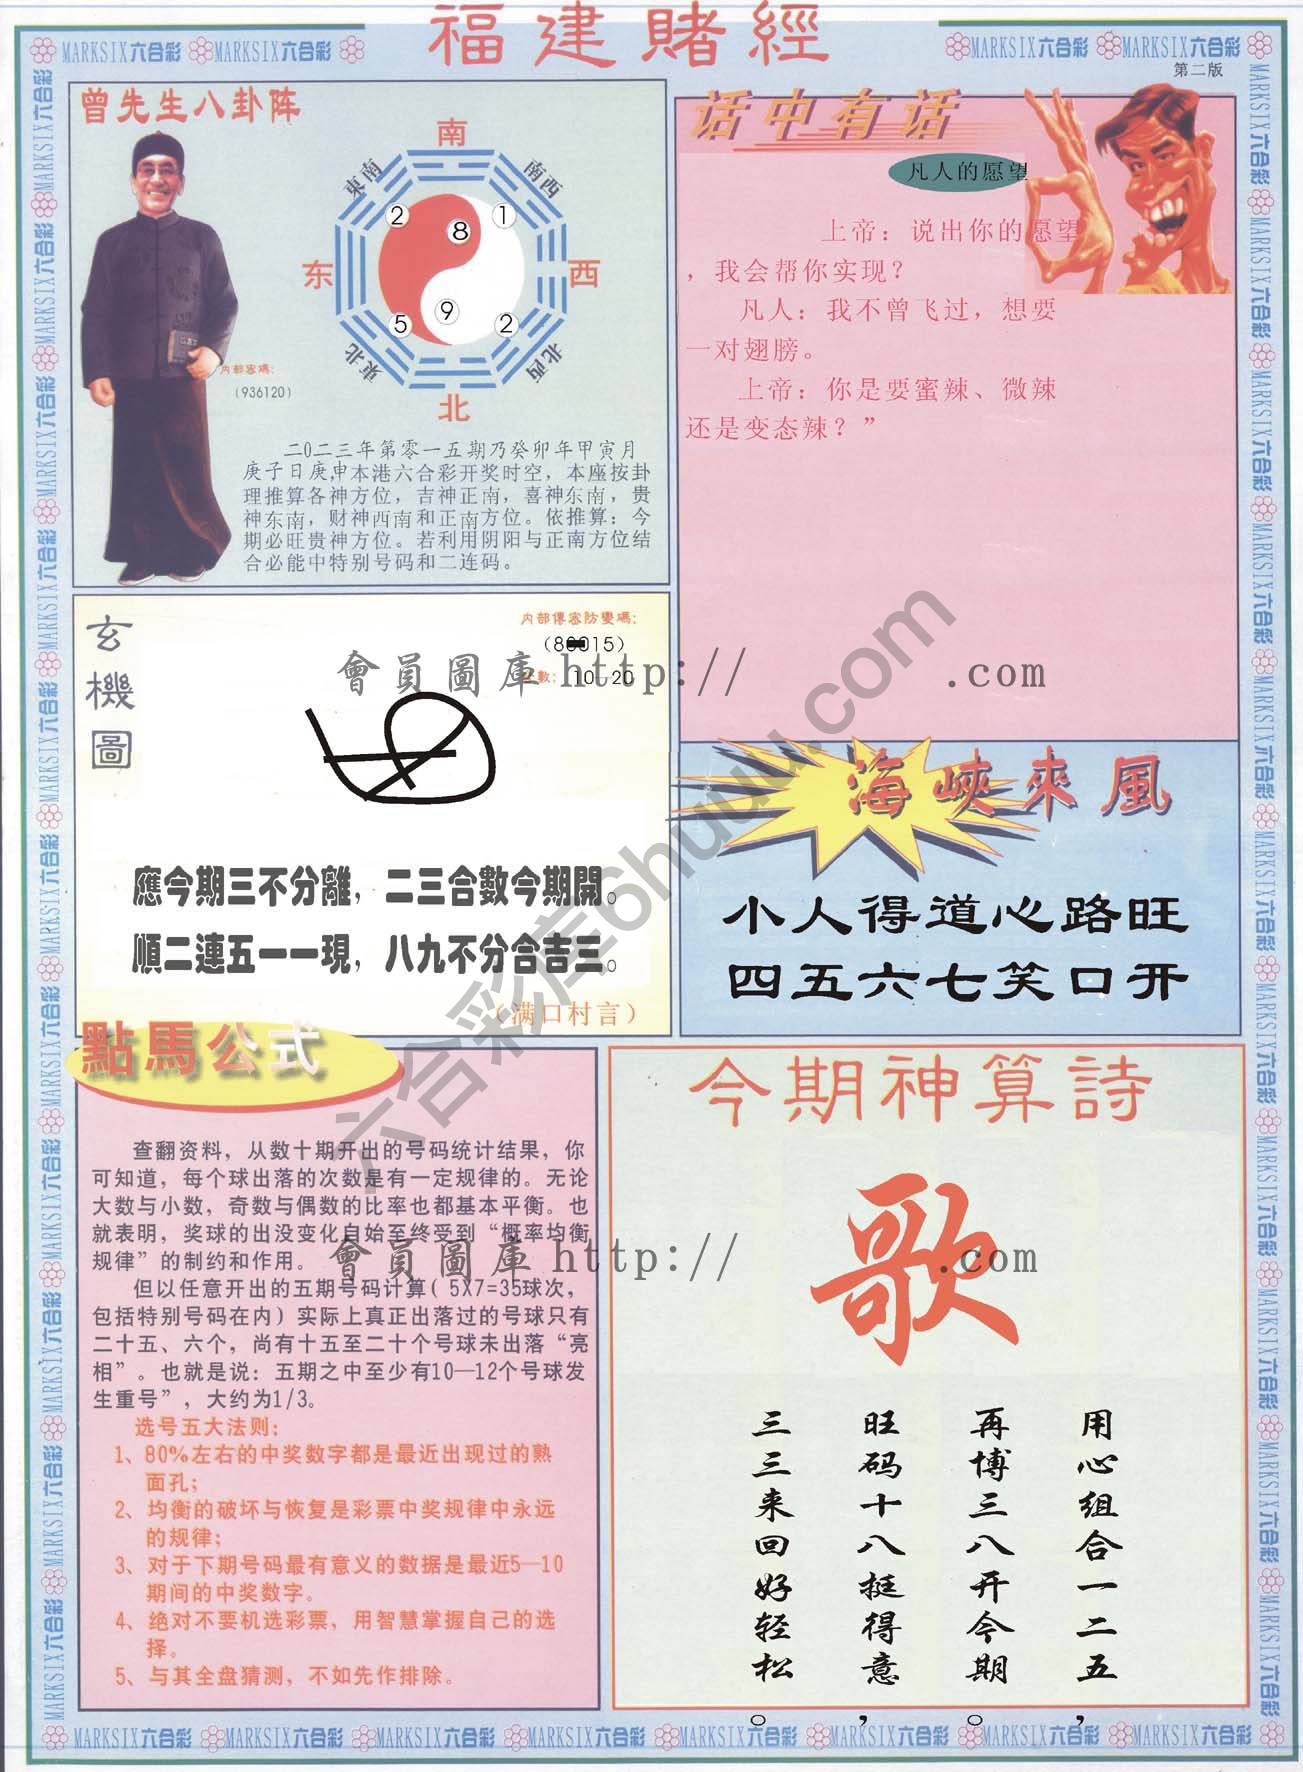 福建賭經
MARKSIX六合彩 MARKSIX六合彩
MARKSIX六合彩 MARKSIX六合彩
第二版
曾先生八卦阵
南
東南
南西
2
8
1
东
西
5
9
2
東北
北西
北
内部密碼:
(936120)
二0二三年第零一五期乃癸卯年甲寅月
庚子日庚申本港六合彩开奖时空，本座按卦
理推算各神方位，吉神正南，喜神东南，贵
神东南，财神西南和正南方位。依推算：今
期必旺贵神方位。若利用阴阳与正南方位结
合必能中特别号码和二连码。
话中有话
凡人的愿望
上帝：说出你的愿望
，我会帮你实现？
凡人：我不曾飞过，想要
一对翅膀。
上帝：你是要蜜辣、微辣
还是变态辣？”
玄機圖
内部傳密防變碼:
15)
數: 10 20
會員圖庫 http:// .com
應今期三不分離，二三合數今期開。
順二連五一一現，八九不分合吉三。
（满口村言）
海峽來風
小人得道心路旺
四五六七笑口开
六合彩库6huuu.com
點馬公式
查翻资料，从数十期开出的号码统计结果，你
可知道，每个球出落的次数是有一定规律的。无论
大数与小数，奇数与偶数的比率也都基本平衡。也
就表明，奖球的出没变化自始至终受到“概率均衡
规律”的制约和作用。
但以任意开出的五期号码计算( 5X7=35球次，
包括特别号码在内）实际上真正出落过的号球只有
二十五、六个，尚有十五至二十个号球未出落“亮
相”。也就是说：五期之中至少有10—12个号球发
生重号”，大约为1/3。
选号五大法则：
1、80%左右的中奖数字都是最近出现过的熟
面孔；
2、均衡的破坏与恢复是彩票中奖规律中永远
的规律；
3、对于下期号码最有意义的数据是最近5—10
期间的中奖数字。
4、绝对不要机选彩票，用智慧掌握自己的选
择。
5、与其全盘猜测，不如先作排除。
會員圖庫 http:// .com
今期神算詩
歌
用心组合一二五，
再博三八开今期。
旺码十八挺得意，
三三来回好轻松。
MARKSIX六合彩 MARKSIX六合彩 MARKSIX六合彩 MARKSIX六合彩 MARKSIX六合彩 MARKSIX六合彩 MARKSIX六合彩 MARKSIX六合彩